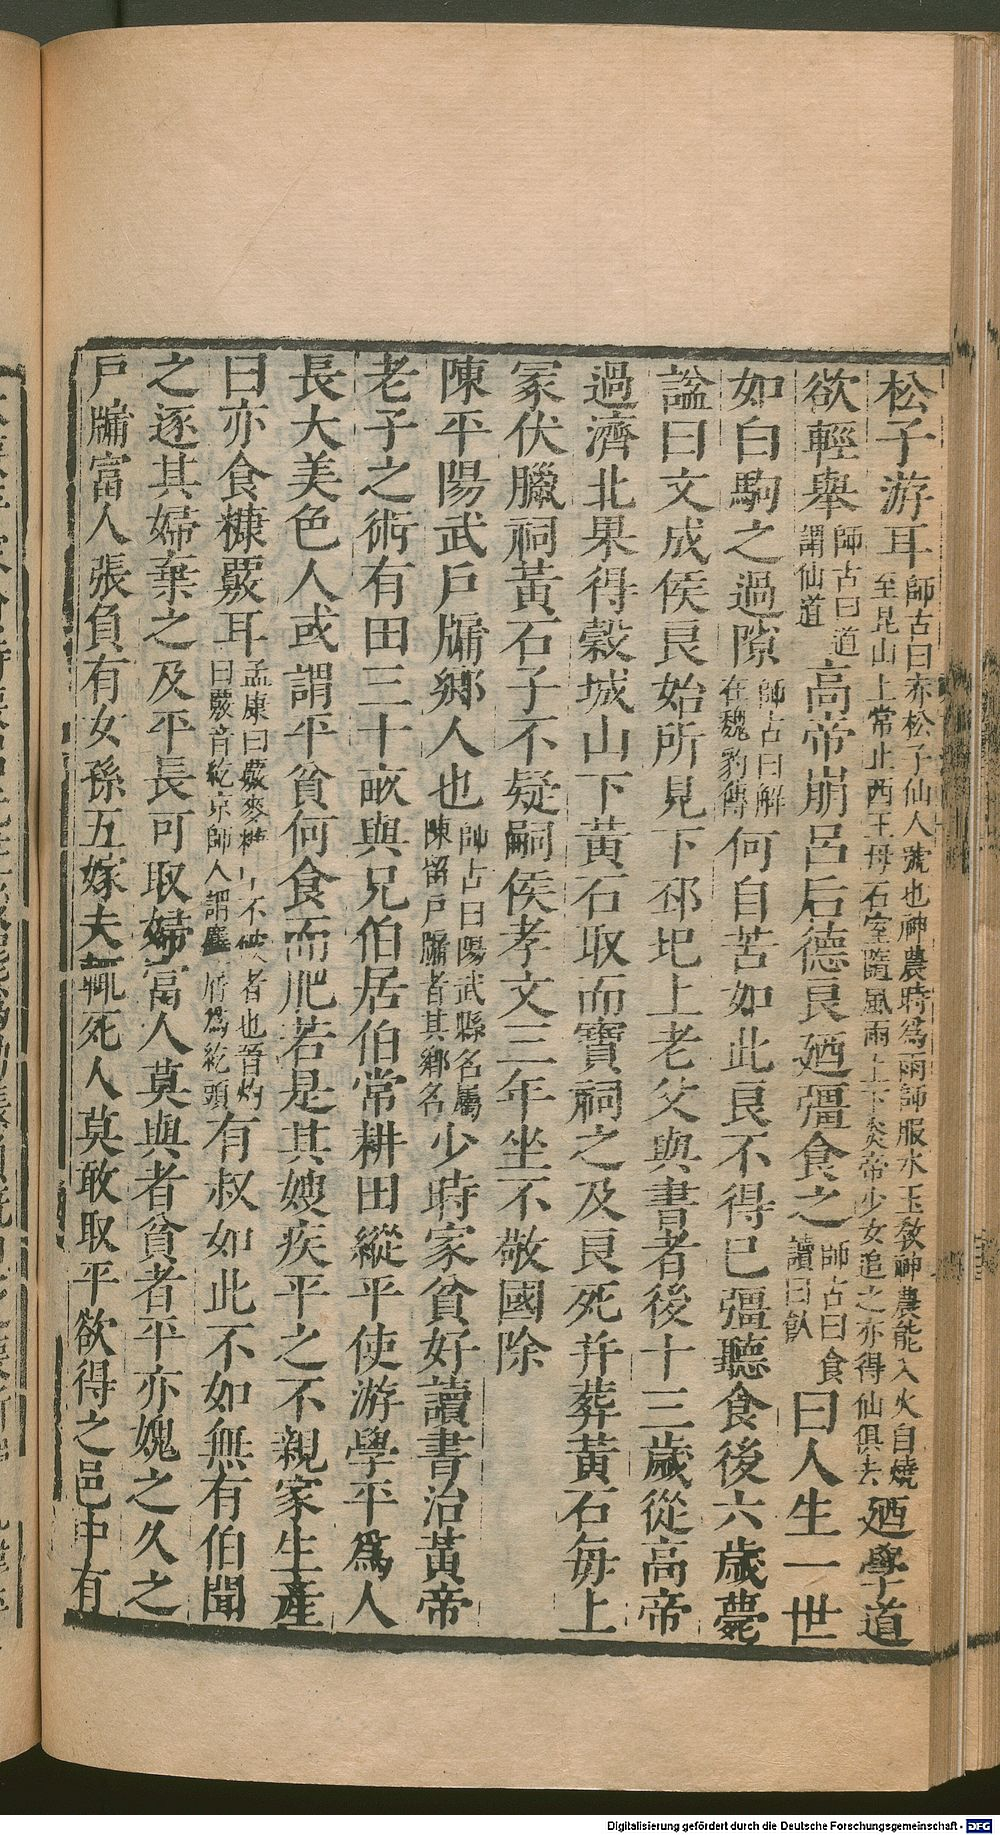 松子游耳師古曰赤松子仙人號也神農時爲雨師服水玉教神農能入火自燒至昆山上常止西王母石室隨風雨上下炎帝少女追之亦得仙俱去廼學道
欲輕舉師古曰道謂仙道高帝崩呂后德良廼彊食之師古曰食讀曰飤曰人生一世
如白駒之過隙師古曰解在魏豹傳何自苦如此良不得已彊聽食後六歲薨
諡曰文成侯良始所見下邳圯上老父與書者後十三歲從高帝
過濟北果得穀城山下黃石取而寶祠之及良死并葬黃石每上
冢伏臘祠黃石子不疑嗣侯孝文三年坐不敬國除
陳平陽武戶牖鄉人也師古曰陽武縣名屬陳留戶牖者其鄉名少時家貧好讀書治黃帝
老子之術有田三十畝與兄伯居伯常耕田縱平使游學平爲人
長大美色人或謂平貧何食而肥若是其嫂疾平之不親家生產
曰亦食糠覈耳孟康曰覈麥糠中不破者也晉灼曰覈音紇京師人謂麤屑爲紇頭有叔如此不如無有伯聞
之逐其婦棄之及平長可取婦富人莫與者貧者平亦媿之久之
戶牖富人張負有女孫五嫁夫輒死人莫敢取平欲得之邑中有
Digitalisierung gefördert durch die Deutsche Forschungsgemeinschaft - DFG